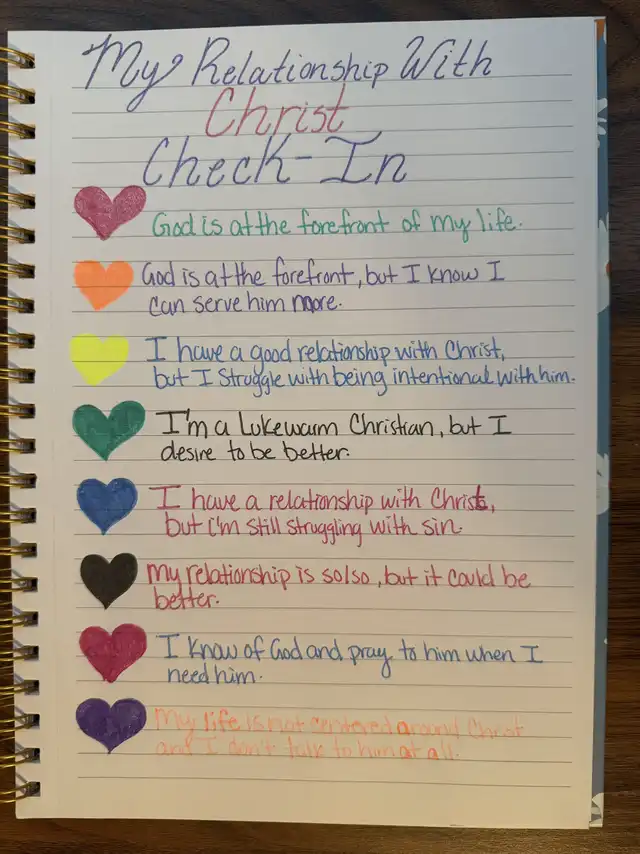 My Relationship With
Christ
Check-In
God is at the forefront of my life.
God is at the forefront, but I know I
can serve him more.
I have a good relationship with Christ,
but I struggle with being intentional with him.
I'm a Lukewarm Christian, but I
desire to be better.
I have a relationship with Christ,
but I'm still struggling with sin.
My relationship is so/so, but it could be
better.
I know of God and pray to him when I
need him.
My life is not centered around Christ
and I don't talk to him at all.